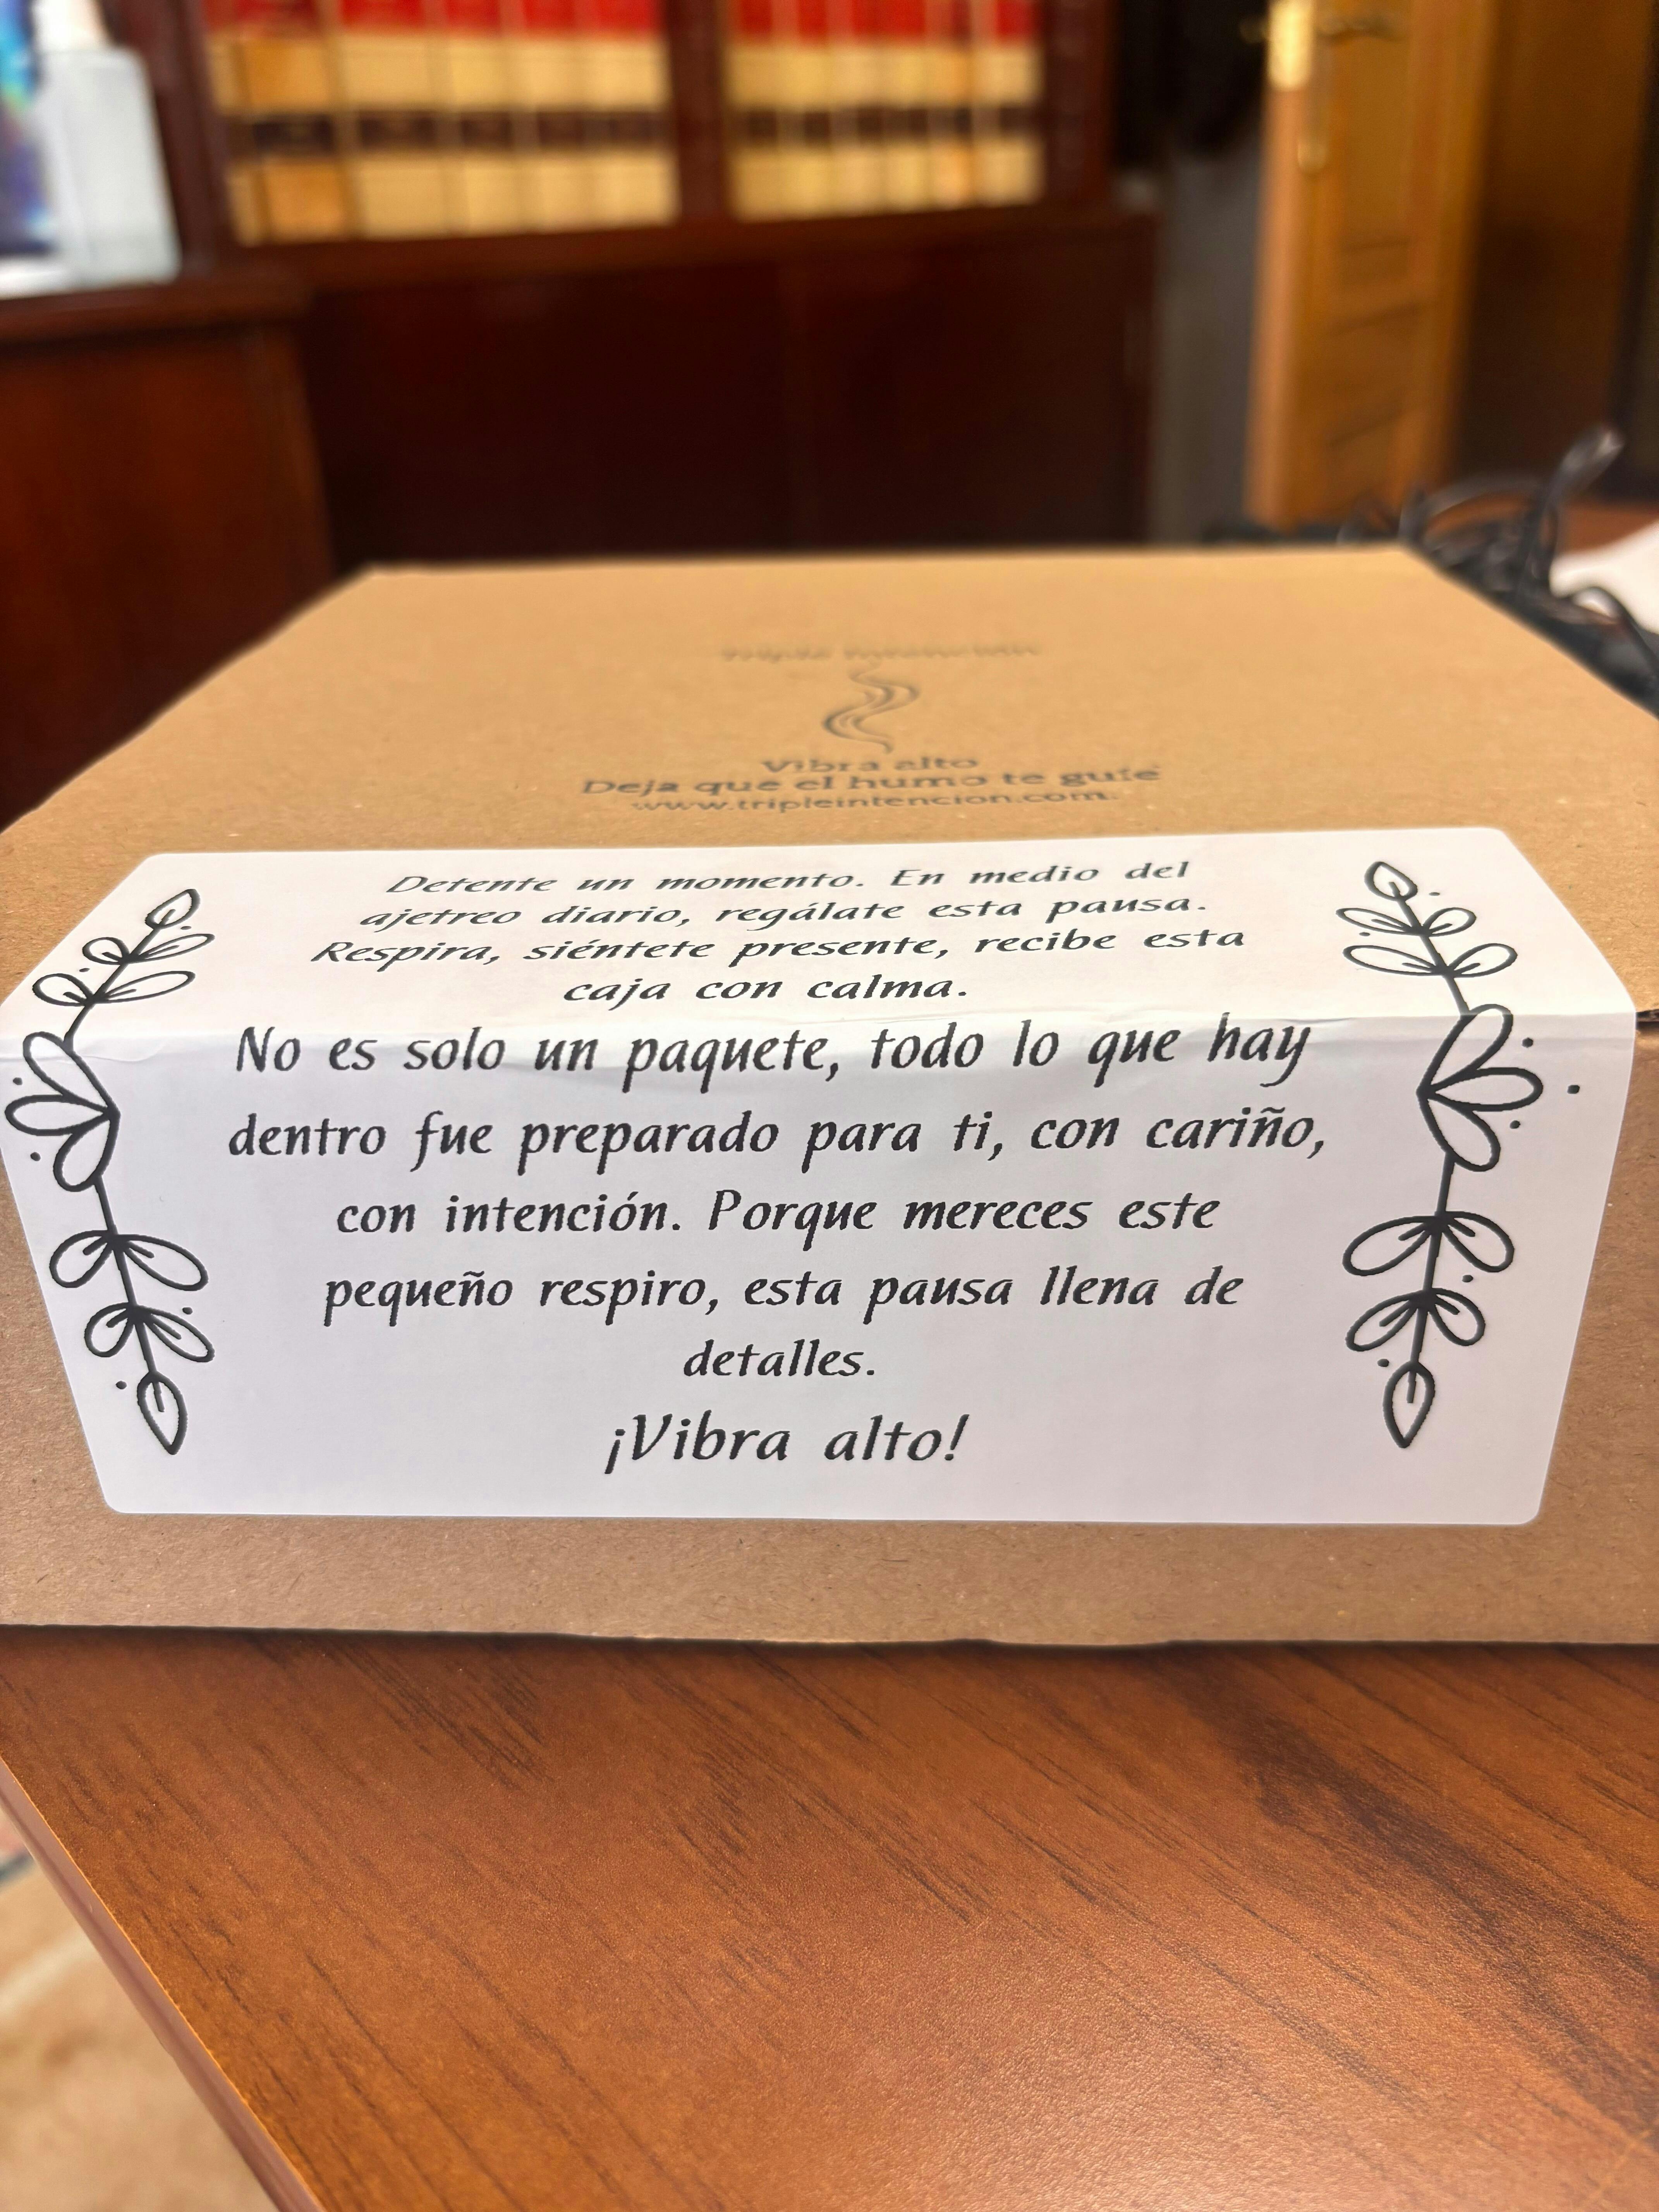 Vibra alto
Deja que el humo te guíe
www.tripleintencion.com.
Detente un momento. En medio del
ajetreo diario, regálate esta pausa.
Respira, siéntete presente, recibe esta
caja con calma.
No es solo un paquete, todo lo que hay
dentro fue preparado para ti, con cariño,
con intención. Porque mereces este
pequeño respiro, esta pausa llena de
detalles.
¡Vibra alto!